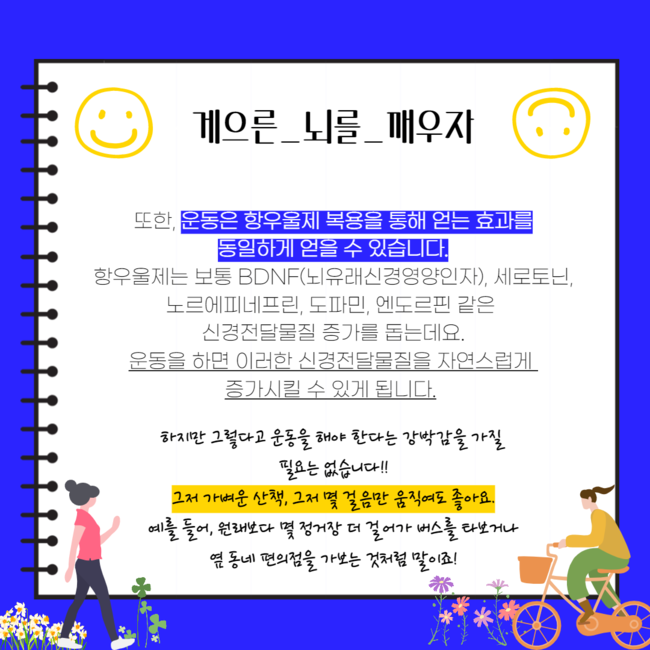 게으른_뇌를_깨우자
또한, 운동은 항우울제 복용을 통해 얻는 효과를
동일하게 얻을 수 있습니다.
항우울제는 보통 BDNF(뇌유래신경영양인자), 세로토닌,
노르에피네프린, 도파민, 엔도르핀 같은
신경전달물질 증가를 돕는데요.
운동을 하면 이러한 신경전달물질을 자연스럽게
증가시킬 수 있게 됩니다.
하지만 그렇다고 운동을 해야 한다는 강박감을 가질
필요는 없습니다!!
그저 가벼운 산책, 그저 몇 걸음만 움직여도 좋아요.
예를 들어, 원래보다 몇 정거장 더 걸어가 버스를 타보거나
옆 동네 편의점을 가보는 것처럼 말이죠!